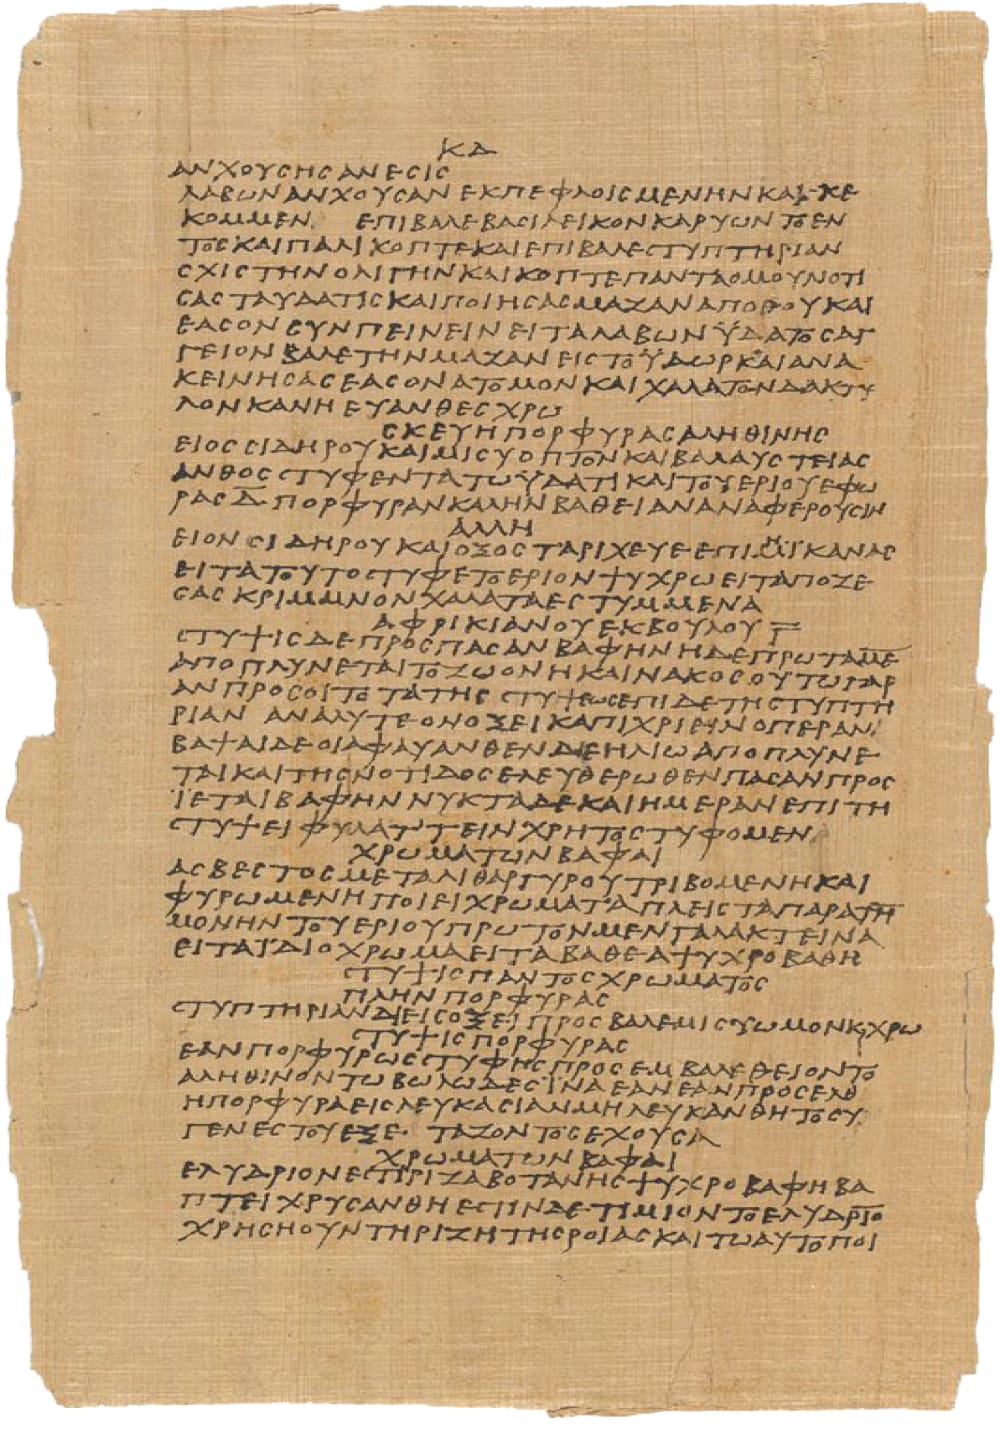 ΚΔ
ΑΝΧΟΥϹΗϹ ΑΝΕϹΙϹ
ΛΑΒΩΝ ΑΝΧΟΥϹΑΝ ΕΚΠΕΦΛΟΙϹΜΕΝΗΝ ΚΑΙ ΚΕ
ΚΟΜΜΕΝ ΕΠΙΒΑΛΕ ΒΑϹΙΛΕΙΚΟΝ ΚΑΡΥΩΝ ΤΟ ΕΝ
ΤΟϹ ΚΑΙ ΠΑΛΙ ΚΟΠΤΕ ΚΑΙ ΕΠΙΒΑΛΕ ϹΤΥΠΤΗΡΙΑΝ
ϹΧΙϹΤΗΝ ΟΛΙΓΗΝ ΚΑΙ ΚΟΠΤΕ ΠΑΝΤΑ ΟΜΟΥ ΝΟΤΙ
ϹΑϹ ΤΑ ΥΔΑΤΙ ΚΑΙ ΠΟΙΗϹΑϹ ΜΑΖΑΝ ΑΠΟΘΟΥ ΚΑΙ
ΕΑϹΟΝ ϹΥΝΠΕΙΝΕΙΝ ΕΙΤΑ ΛΑΒΩΝ ΫΔΑΤΟϹ ΑΓ
ΓΕΙΟΝ ΒΑΛΕ ΤΗΝ ΜΑΖΑΝ ΕΙϹ ΤΟ ΫΔΩΡ ΚΑΙ ΑΝΑ
ΚΕΙΝΗϹΑϹ ΕΑϹΟΝ ΑΤΟΜΟΝ ΚΑΙ ΧΑΛΑ ΤΟΝ ΔΑΚΤΥ
ΛΟΝ ΚΑΝ Η ΕΥΑΝΘΕϹ ΧΡΩ
ϹΚΕΥΗ ΠΟΡΦΥΡΑϹ ΑΛΗΘΙΝΗϹ
ΕΙΟϹ ϹΙΔΗΡΟΥ ΚΑΙ ΜΙϹΥ ΟΠΤΟΝ ΚΑΙ ΒΑΛΑΥϹΤΕΙΑϹ
ΑΝΘΟϹ ϹΤΥΦΕΝΤΑ ΤΩ ΫΔΑΤΙ ΚΑΙ ΤΟΥ ΕΡΙΟΥ ΕΦ Ω
ΡΑϹ Δ̅ ΠΟΡΦΥΡΑΝ ΚΑΛΗΝ ΒΑΘΕΙΑΝ ΑΝΑΦΕΡΟΥϹΙΝ
ΑΛΛΗ
ΕΙΟΝ ϹΙΔΗΡΟΥ ΚΑΙ ΟΞΟϹ ΤΑΡΙΧΕΥΕ ΕΠΙ ΙΚΑΝΑϹ
ΕΙΤΑ ΤΟΥΤΟ ϹΤΥΦΕ ΤΟ ΕΡΙΟΝ ΨΥΧΡΩ ΕΙΤ ΑΠΟΖΕ
ϹΑϹ ΚΡΙΜΜΝΟΝ ΧΑΛΑ ΤΑ ΕϹΤΥΜΜΕΝΑ
ΑΦΡΙΚΙΑΝΟΥ ΕΚ ΒΟΥΛΟΥ Γ̅
ϹΤΥΨΙϹ ΔΕ ΠΡΟϹ ΠΑϹΑΝ ΒΑΦΗΝ ΗΔΕ ΠΡΩΤΑ ΜΕ
ΑΠΟΠΛΥΝΕΤΑΙ ΤΟ ΖΩΟΝ Η ΚΑΙ ΝΑΚΟϹ ΟΥΤΩ ΓΑΡ
ΑΝ ΠΡΟϹΟΙΤΟ ΤΑ ΤΗϹ ϹΤΥΨΕΩϹ ΕΠΙ ΔΕ ΤΗ ϹΤΥΠΤΗ
ΡΙΑΝ ΑΝΑΛΥΤΕΟΝ ΟΞΕΙ ΚΑΠΙΧΡΙΕΙΝ ΟΠΕΡ ΑΝ
ΒΑΨΑΙ ΔΕΟΙ ΑΦΑΥΑΝΘΕΝ ΔΕ ΗΛΙΩ ΑΠΟΠΛΥΝΕ
ΤΑΙ ΚΑΙ ΤΗϹ ΝΟΤΙΔΟϹ ΕΛΕΥΘΕΡΩΘΕΝ ΠΑϹΑΝ ΠΡΟϹ
ΪΕΤΑΙ ΒΑΦΗΝ ΝΥΚΤΑ ΔΕ ΚΑΙ ΗΜΕΡΑΝ ΕΠΙ ΤΗ
ϹΤΥΨΕΙ ΦΥΛΑΤΤΕΙΝ ΧΡΗ ΤΟ ϹΤΥΦΟΜΕΝ
ΧΡΩΜΑΤΩΝ ΒΑΦΑΙ
ΑϹΒΕϹΤΟϹ ΜΕΤΑ ΛΙΘΑΡΓΥΡΟΥ ΤΡΙΒΟΜΕΝΗ ΚΑΙ
ΦΥΡΩΜΕΝΗ ΠΟΙΕΙ ΧΡΩΜΑΤΑ ΠΛΕΙϹΤΑ ΠΑΡΑ ΤΗ
ΜΟΝΗΝ ΤΟΥ ΕΡΙΟΥ ΠΡΩΤΟΝ ΜΕΝ ΓΑΛΑΚΤΕΙΝΑ
ΕΙΤΑ ΪΔΙΟΧΡΩΜΑ ΕΙΤΑ ΒΑΘΕΑ ΨΥΧΡΟΒΑΦΗ
ϹΤΥΨΙϹ ΠΑΝΤΟϹ ΧΡΩΜΑΤΟϹ
ΠΛΗΝ ΠΟΡΦΥΡΑϹ
ϹΤΥΠΤΗΡΙΑΝ ΔΙΕΙϹ ΟΞΕΙ ΠΡΟϹΒΑΛΕ ΜΙϹΥ ΩΜΟΝ Κ ΧΡΩ
ϹΤΥΨΙϹ ΠΟΡΦΥΡΑϹ
ΕΑΝ ΠΟΡΦΥΡΩϹ ϹΤΥΦΗϹ ΠΡΟϹΕΜΒΑΛΕ ΘΕΙΟΝ ΤΟ
ΑΛΗΘΙΝΟΝ ΤΩ ΒΩΛΩΔΕϹ ΪΝΑ ΕΑΝ ΕΑΝ ΠΡΟϹΕΛΘ
Η ΠΟΡΦΥΡΑ ΕΙϹ ΛΕΥΚΑϹΙΑΝ ΜΗ ΛΕΥΚΑΝΘΗ ΤΟ ϹΥ
ΓΕΝΕϹ ΤΟΥ ΕΞΕ ΤΑΖΟΝΤΟϹ ΕΧΟΥϹΑ
ΧΡΩΜΑΤΩΝ ΒΑΦΑΙ
ΕΛΥΔΡΙΟΝ ΕϹΤΙ ΡΙΖΑ ΒΟΤΑΝΗϹ ΨΥΧΡΟΒΑΦΗ ΒΑ
ΠΤΕΙ ΧΡΥϹΑΝΘΗ ΕϹΤΙΝ ΔΕ ΤΙΜΙΟΝ ΤΟ ΕΛΥΔΡΙΟ
ΧΡΗϹΗ ΟΥΝ ΤΗ ΡΙΖΗ ΤΗϹ ΡΟΙΑϹ ΚΑΙ ΤΩ ΑΥΤΟ ΠΟΙ